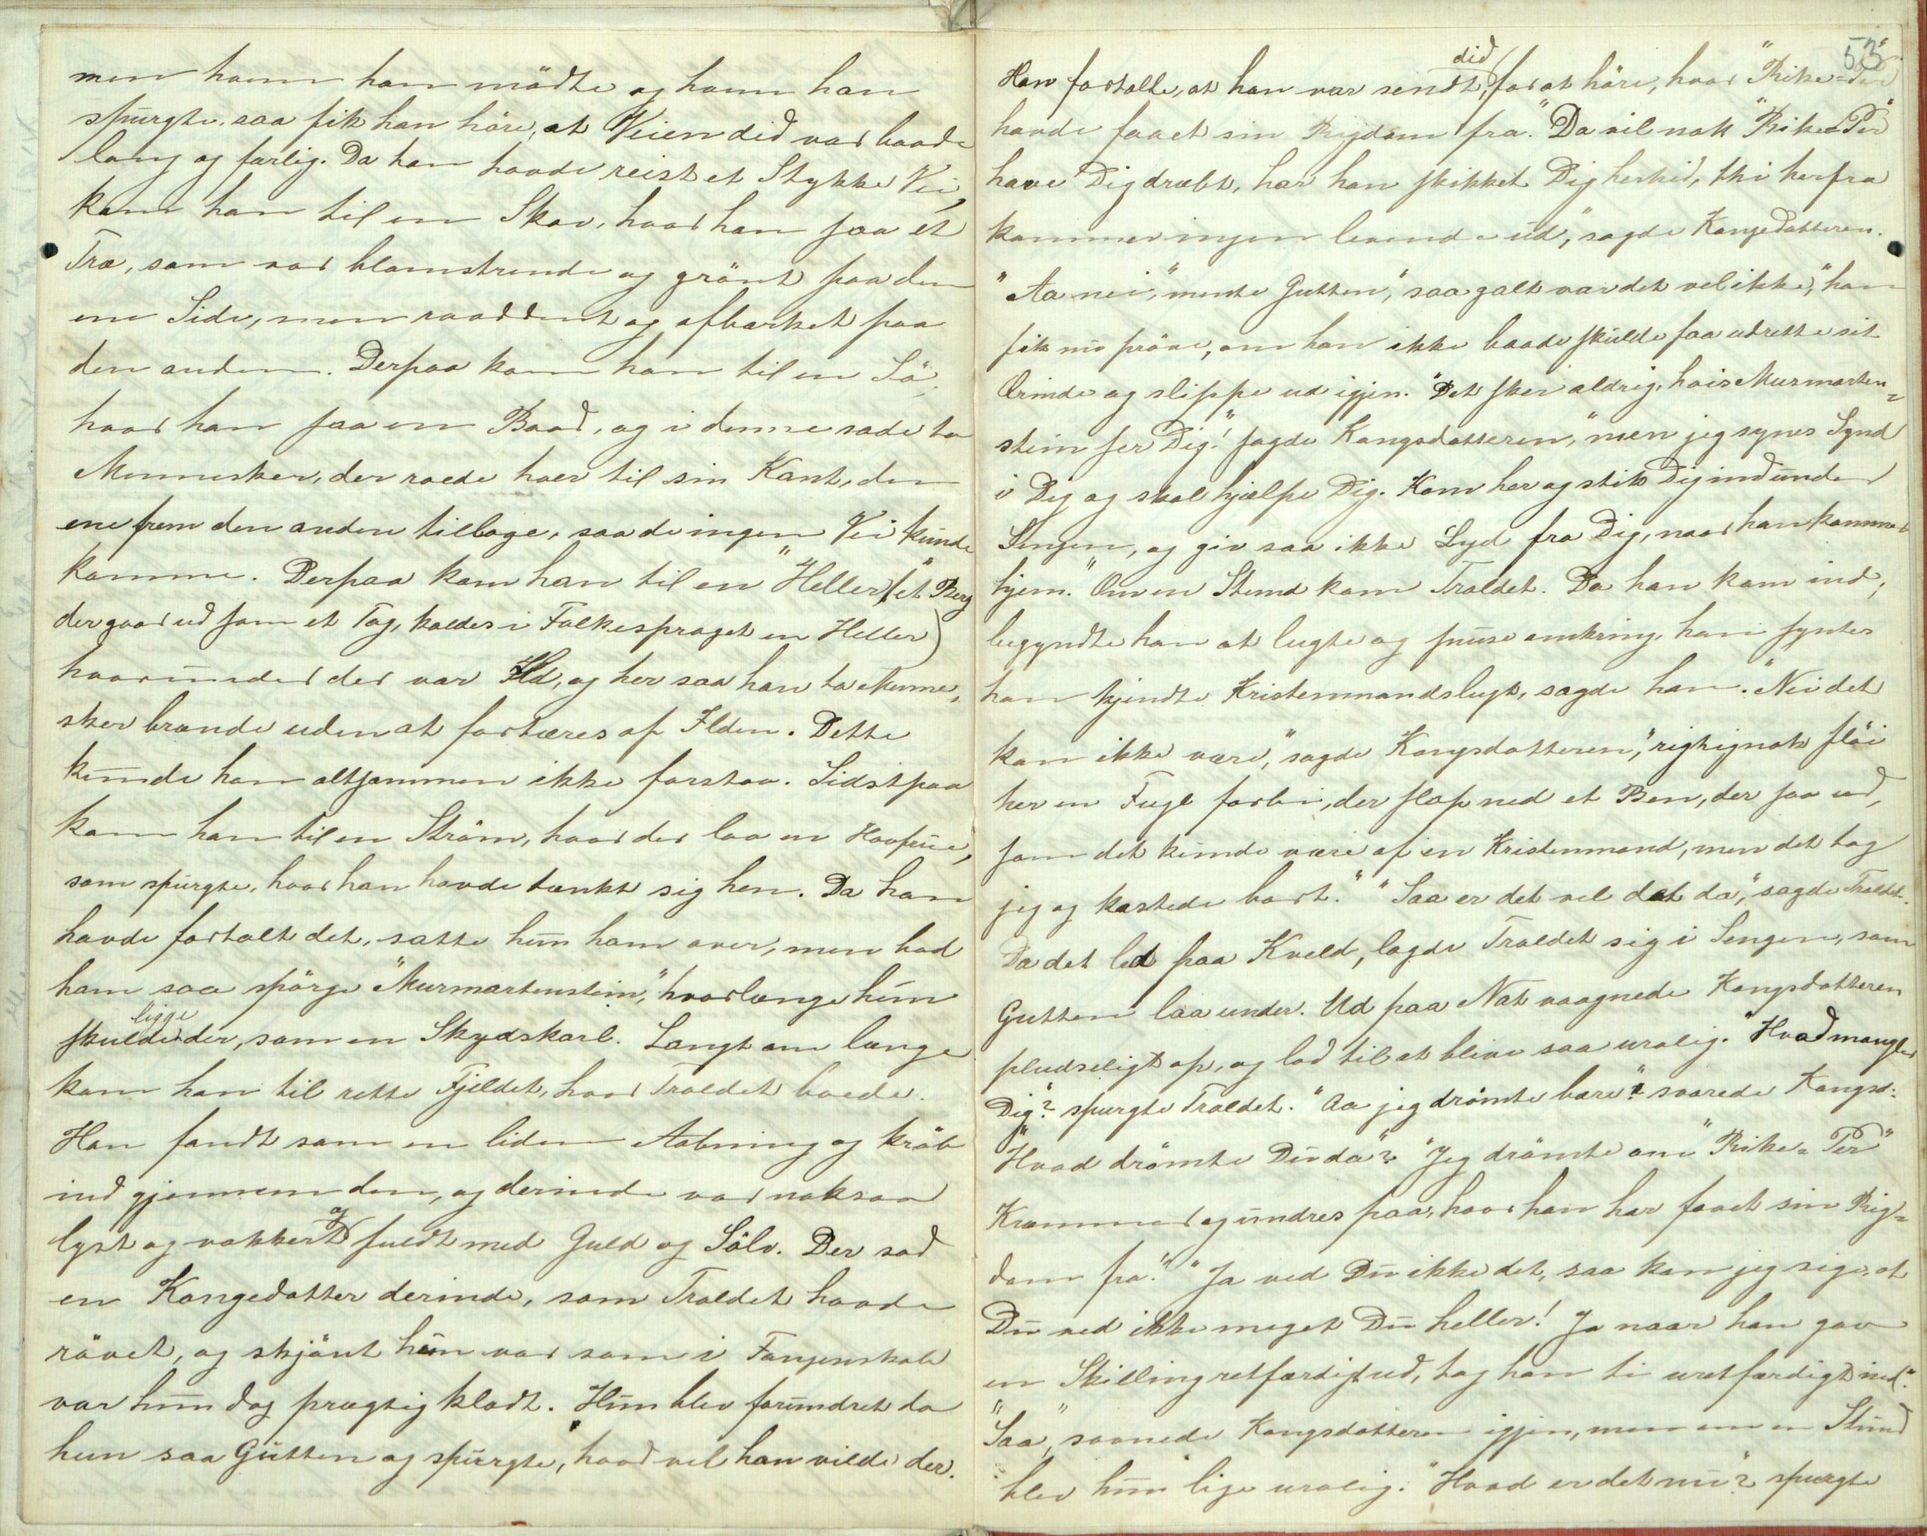 men hvem han mödte og hvem han
spurgte, saa fik han höre, at Veien did var baade
lang og farlig. Da han havde reist et Stykke Vei,
kom han til en Skov, hvor han saa et
Træ, som var blomstrende og grönt paa den
ene Side, men raaddent og afbarket paa
den anden. Derpaa kom han til en Sö,
hvor han saa en Baad, og i denne sade to
Mennesker, der roede hver til sin Kant, den
ene frem den anden tilbage, saa de ingen Vei kunde
komme. Derpaa kom han til en "Heller" (et Berg
der gaar ud som et Tag, kaldes i Folkesproget en Heller)
hvorunder der var Ild, og her saa han to Menne-
sker brænde uden at fortæres af Ilden. Dette
kunde han altsammen ikke forstaa. Sidstpaa
kom han til en Ström, hvor der laa en Havfrue,
som spurgte, hvor han havde tænkt sig hen. Da han
havde fortalt det, satte hun ham over, men bad
ham saa spörge "Murmartenstein", hvorlænge hun
skulde ligge der, som en Skydskarl. Langt om længe
kom han til rette Fjeldet, hvor Troldet boede.
Han fandt som en liden Aabning og kröb
ind gjennem den, og derinde var noksaa
lyst og vakkert og fuldt med Guld og Sölv. Der sad
en Kongedatter derinde, som Troldet havde
rövet, og skjönt hun var som i Fangenskab
var hun dog prægtig klædt. Hun blev forundret da
hun saa Gutten og spurgte, hvad vel han vilde der.
53
Han fortalte, at han var sendt did for at höre, hvor "Rike-Per"
havde faaet sin Rigdom fra. "Da vil nok "Rike-Per"
have Dig dræbt, har han skikket Dig herhid, thi herfra
kommer ingen levende ud," sagde Kongedatteren.
"Aa nei," mente Gutten, "saa galt var det vel ikke," han
fik nu pröve, om han ikke baade skulde faa udrette sit
Ærinde og slippe ud igjen. "Det sker aldrig, hvis Murmarten-
stein ser Dig!" sagde Kongsdatteren, "men jeg synes Synd
i Dig og skal hjælpe Dig. Kom her og stik Dig ind under
Sengen, og giv saa ikke Lyd fra Dig, naar han kommer
hjem." Om en Stund kom Troldet. Da han kom ind,
begyndte han at lugte og snuse omkring, han syntes
han kjendte Kristenmandslugt, sagde han. "Nei det
kan ikke være," sagde Kongsdatteren, "rigtignok flöi
her en Fugl forbi, der slap ned et Ben, der saa ud,
som det kunde være af en Kristenmand, men det tog
jeg og kastede bort." "Saa er det vel det da," sagde Troldet.
Da det led paa Kveld, lagde Troldet sig i Sengen, som
Gutten laa under. Ud paa Nat vaagnede Kongsdatteren
pludseligt op, og lod til at blive saa urolig. "Hvad mangler
Dig?" spurgte Troldet. "Aa jeg drömte bare", svarede Kongsd.
"Hvad drömte Du da"? "Jeg drömte om "Rike-Per"
Kræmmer og undres paa, hvor han har faaet sin Rig-
dom fra." "Ja ved Du ikke det, saa kan jeg sige, at
Du ved ikke meget Du heller! Jo naar han gav
en Skilling retfærdigt ud, tog han ti uretfærdigt ind."
"Saa", sovnede Kongsdatteren igjen, men om en Stund
blev hun lige urolig. "Hvad er det nu"? spurgte